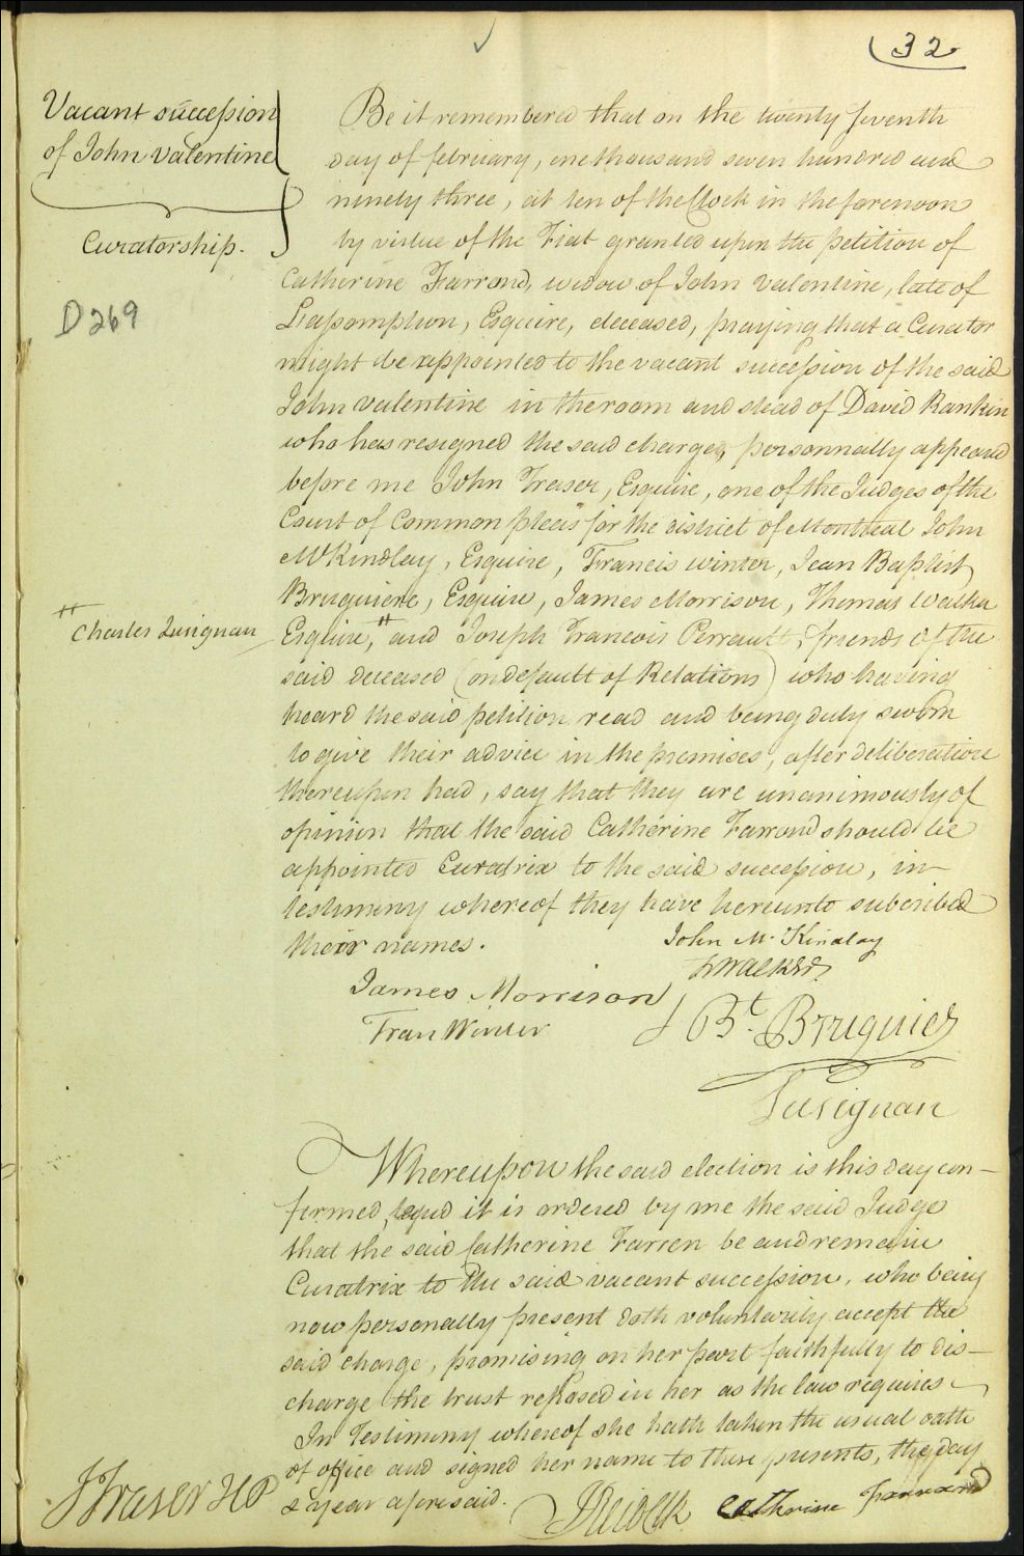 32
Vacant succession
of John Valentine
Curatorship.
D269
Be it remembered that on the twenty seventh
day of february, one thousand seven hundred and
ninety three, at ten of the Clock in the forenoon
by virtue of the Fiat granted upon the petition of
Catherine Farrond, widow of John Valentine, late of
Lassomption, Esquire, deceased, praying that a Curator
might be appointed to the vacant succession of the said
John Valentine in the room and stead of David Rankin
who has resigned the said charge, personnally appeared
before me John Fraser, Esquire, one of the Judges of the
Court of Common pleas for the district of Montreal John
McKindlay, Esquire, Francis Winter, Jean Baptist
Bruguiere, Esquire, James Morrison, Thomas Walker
# Charles Lusignan
Esquire, # and Joseph Francois Perrault, friends of the
said deceased (on default of Relations) who having
heard the said petition read and being duly sworn
to give their advice in the premises, after deliberation
thereupon had, say that they are unanimously of
opinion that the said Catherine Farrond should be
appointed Curatrix to the said succession, in
testimony whereof they have hereunto subcribed
their names.
John McKindlay
TWalker
James Morrison
Fran Winter
J Bt. Bruguier
Lusignan
Whereupon the said election is this day con-
firmed, and it is ordered by me the said Judge
that the said Catherine Farren be and remain
Curatrix to the said vacant succession, who being
now personally present doth voluntarily accept the
said charge, promising on her part faithfully to dis-
charge the trust reposed in her as the law requires
In Testimony whereof she hath taken the usual oath
of office and signed her name to these presents, the day
& year aforesaid.
JFraser JCP
JReid Clk
Catherine Farrand